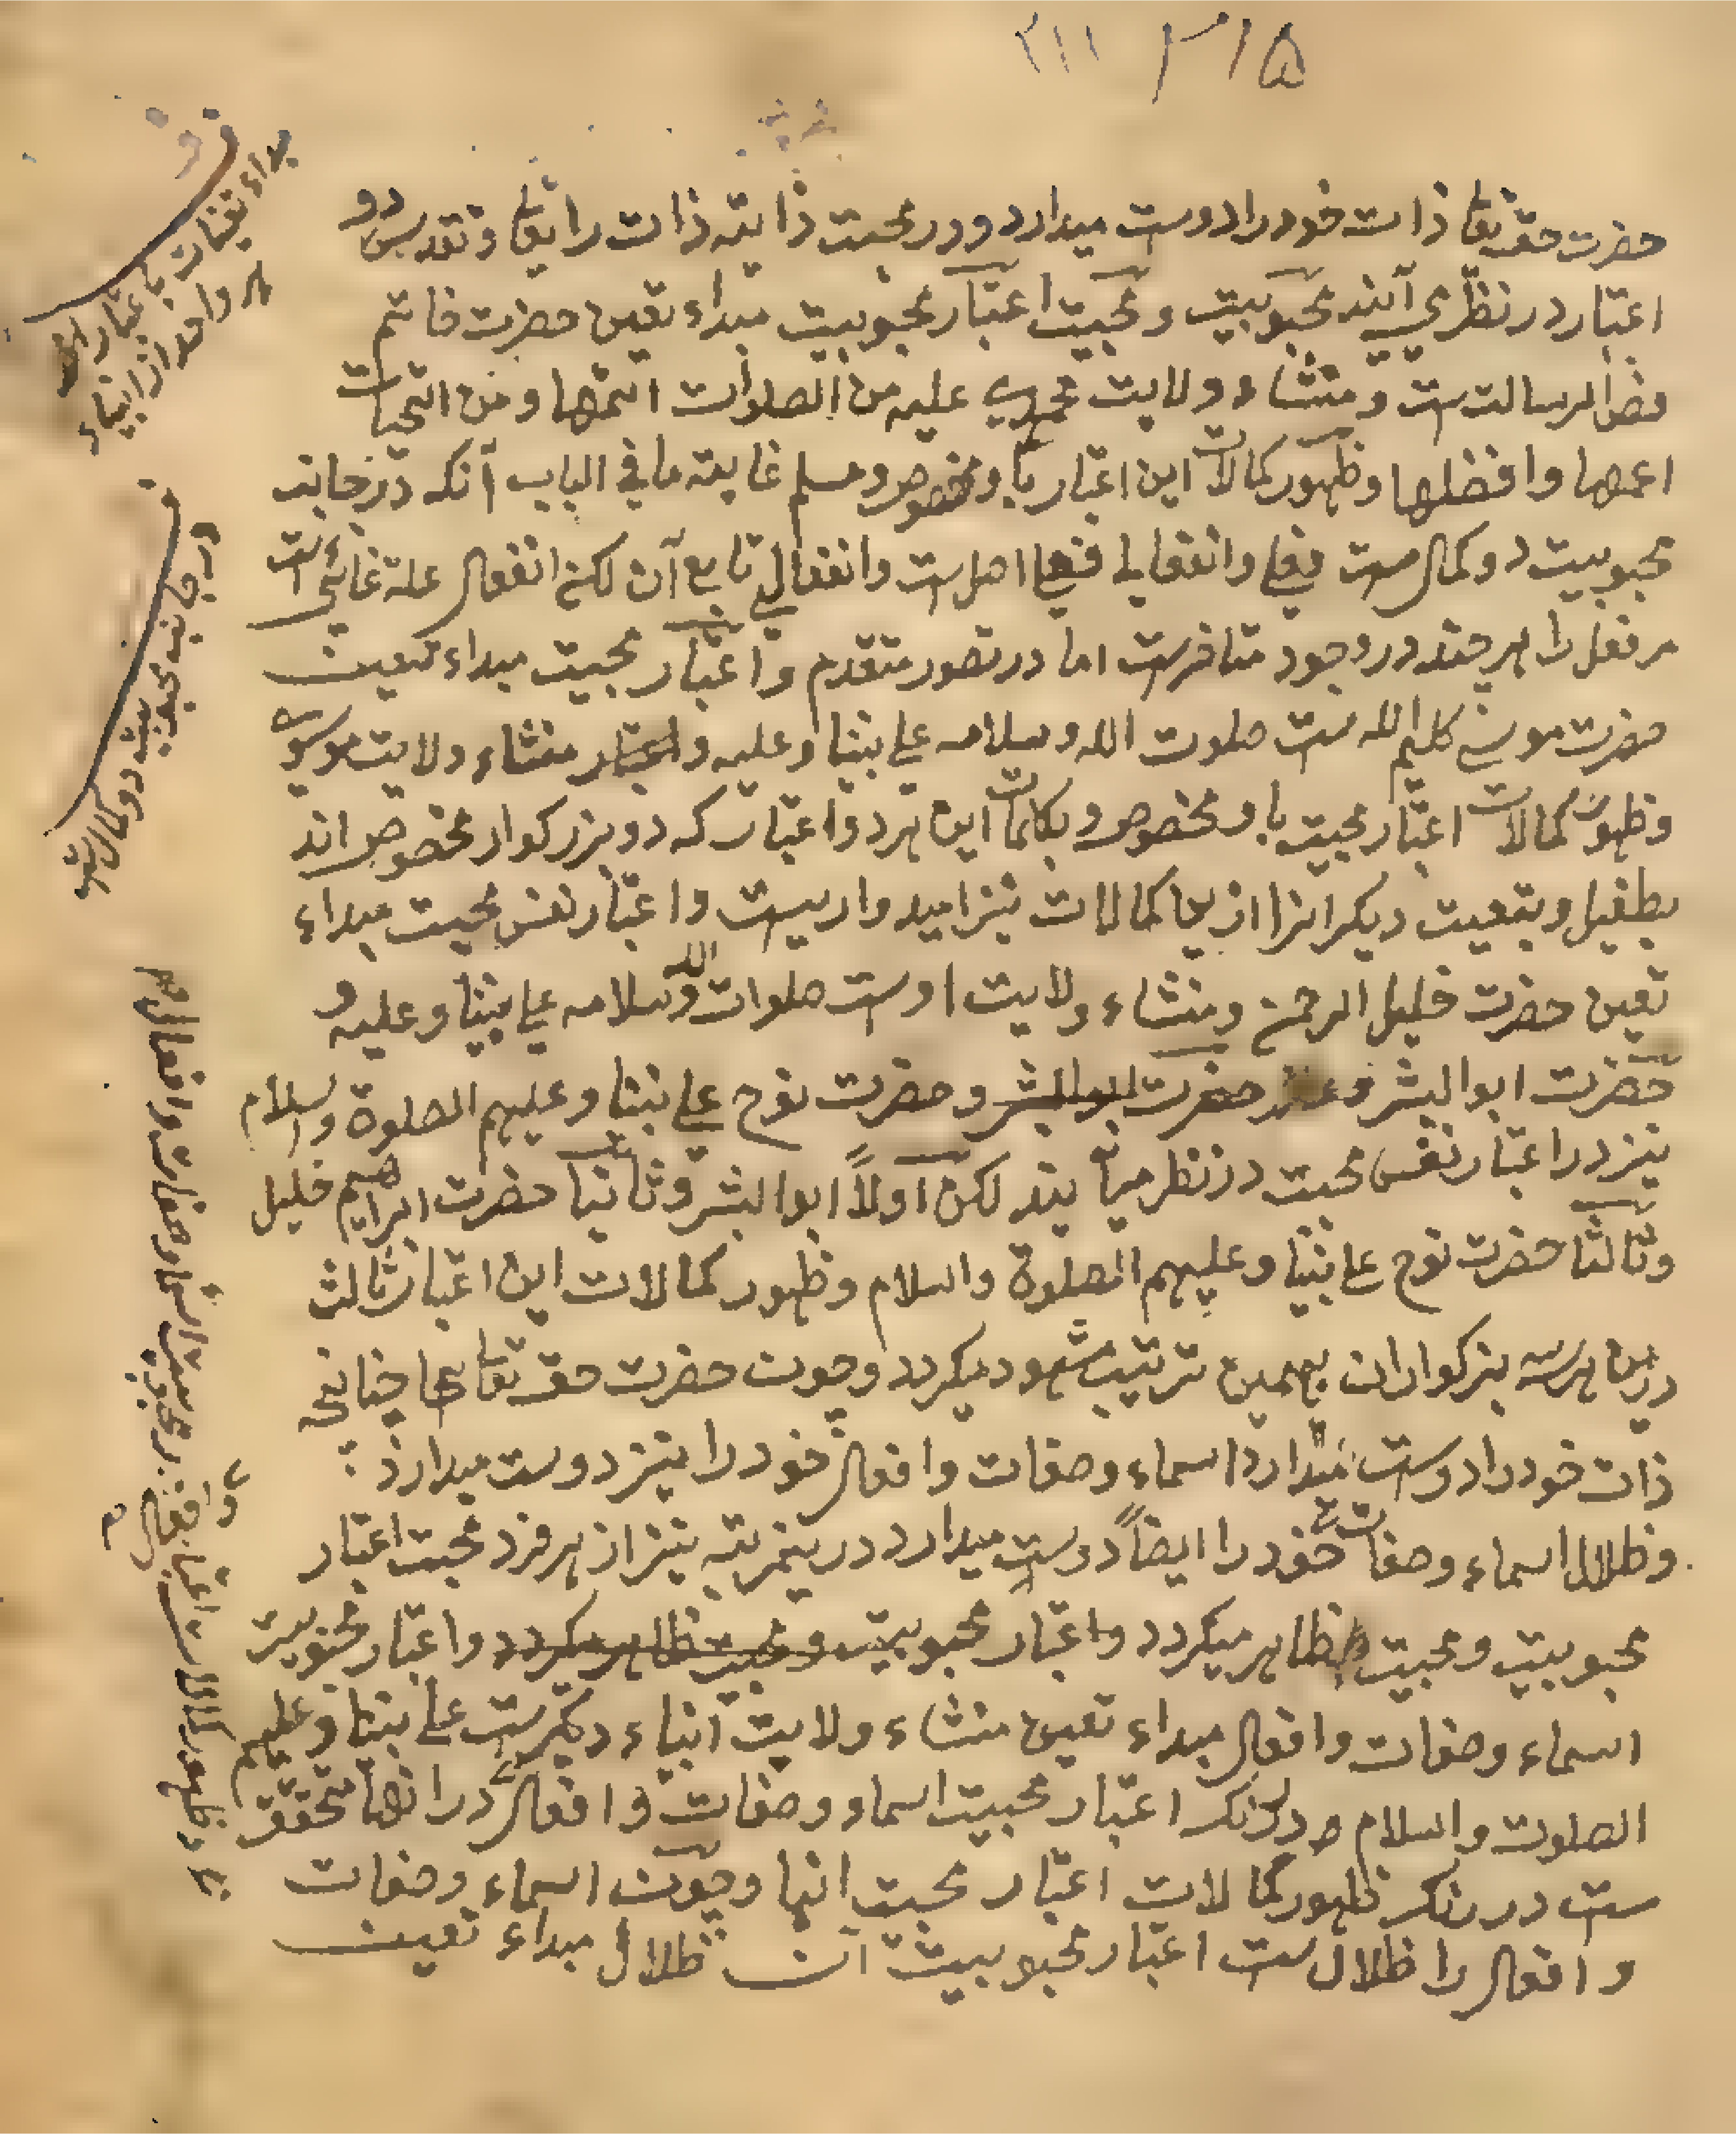 ۳۱۵ ۳۱۱
حضرت حق تعا ذات خود را دوست میدارد و در محبت ذاتیه ذات را تعا و تقدس دو
اعتبار در نظر می آیند محبوبیت و محبیت اعتبار محبوبیت مبداء تعین حضرت خاتم
فص الرسالت ست و منشاء ولایت محمدی علیه من الصلوات اتمها و من التحیات
اعمها و افضلها و ظهور کمالات این اعتبار باو مخصوص و مسلم غایته ما فی الباب آنکه در جانب
محبوبیت دو کمال ست فعلی و انفعالی فعلی اصل ست و انفعالی تابع آن لکن انفعال علة غائی است
مر فعل را هر چند در وجود متاخرست اما در تصور متقدم و اعتبار محبیت مبداء تعین
حضرت موسی کلیم الله ست صلوت الله و سلامه علی نبینا و علیه و اعتبار منشاء ولایت موسوی
و ظهور کمالات اعتبار محبیت باو مخصوص و بکمالات این هر دو اعتبار که دو بزرکوار مخصوص اند
بطفیل و بتبعیت دیکرانرا ازین کمالات نیز امیدواریست و اعتبار نفس محبت مبداء
تعین حضرت خلیل الرحمن و منشاء ولایت اوست صلوات الله و سلامه علی نبینا و علیه و
حضرت ابو البشر و حضرت ابو البشر و حضرت نوح علی نبینا و علیهم الصلوة و السلام
نیز در اعتبار نفس محبت در نظر می آیند لکن اولاً ابو البشر و ثانیا حضرت ابراهیم خلیل
و ثالثا حضرت نوح علی نبینا و علیهم الصلوة و السلام و ظهور کمالات این اعتبار ثالث
درین هر سه بزرکواران بهمین ترتیب مشهود میکردد و چون حضرت حق تعا چنانچه
ذات خود را دوست میدارد اسماء و صفات و افعال خود را نیز دوست میدارد
و ظلال اسماء و صفات خود را ایضاً دوست میدارد درینمرتبه نیز از هر فرد محبت اعتبار
محبوبیت و محبیت ظاهر میکردد و اعتبار محبوبیت و محبیت ظاهر میکردد و اعتبار محبوبیت
اسماء و صفات و افعال مبداء تعین منشاء ولایت انبیاء دیکرست علی نبینا و علیهم
الصلوت و السلام هر اعتبار محبیت اسماء و صفات و افعال در آنها متحقق
ست در رنک ظهور کمالات اعتبار محبت انها و چون اسماء و صفات
و افعال را ظلال ست اعتبار محبوبیت آن ظلال مبداء تعین
مبداء تعینات باعتبار
هر واحد از انبیاء
در جانب محبوبیت دو کمال ست
ظهور کمالات اعتبار محبوبیت اسماء و صفات و افعال
و افعال